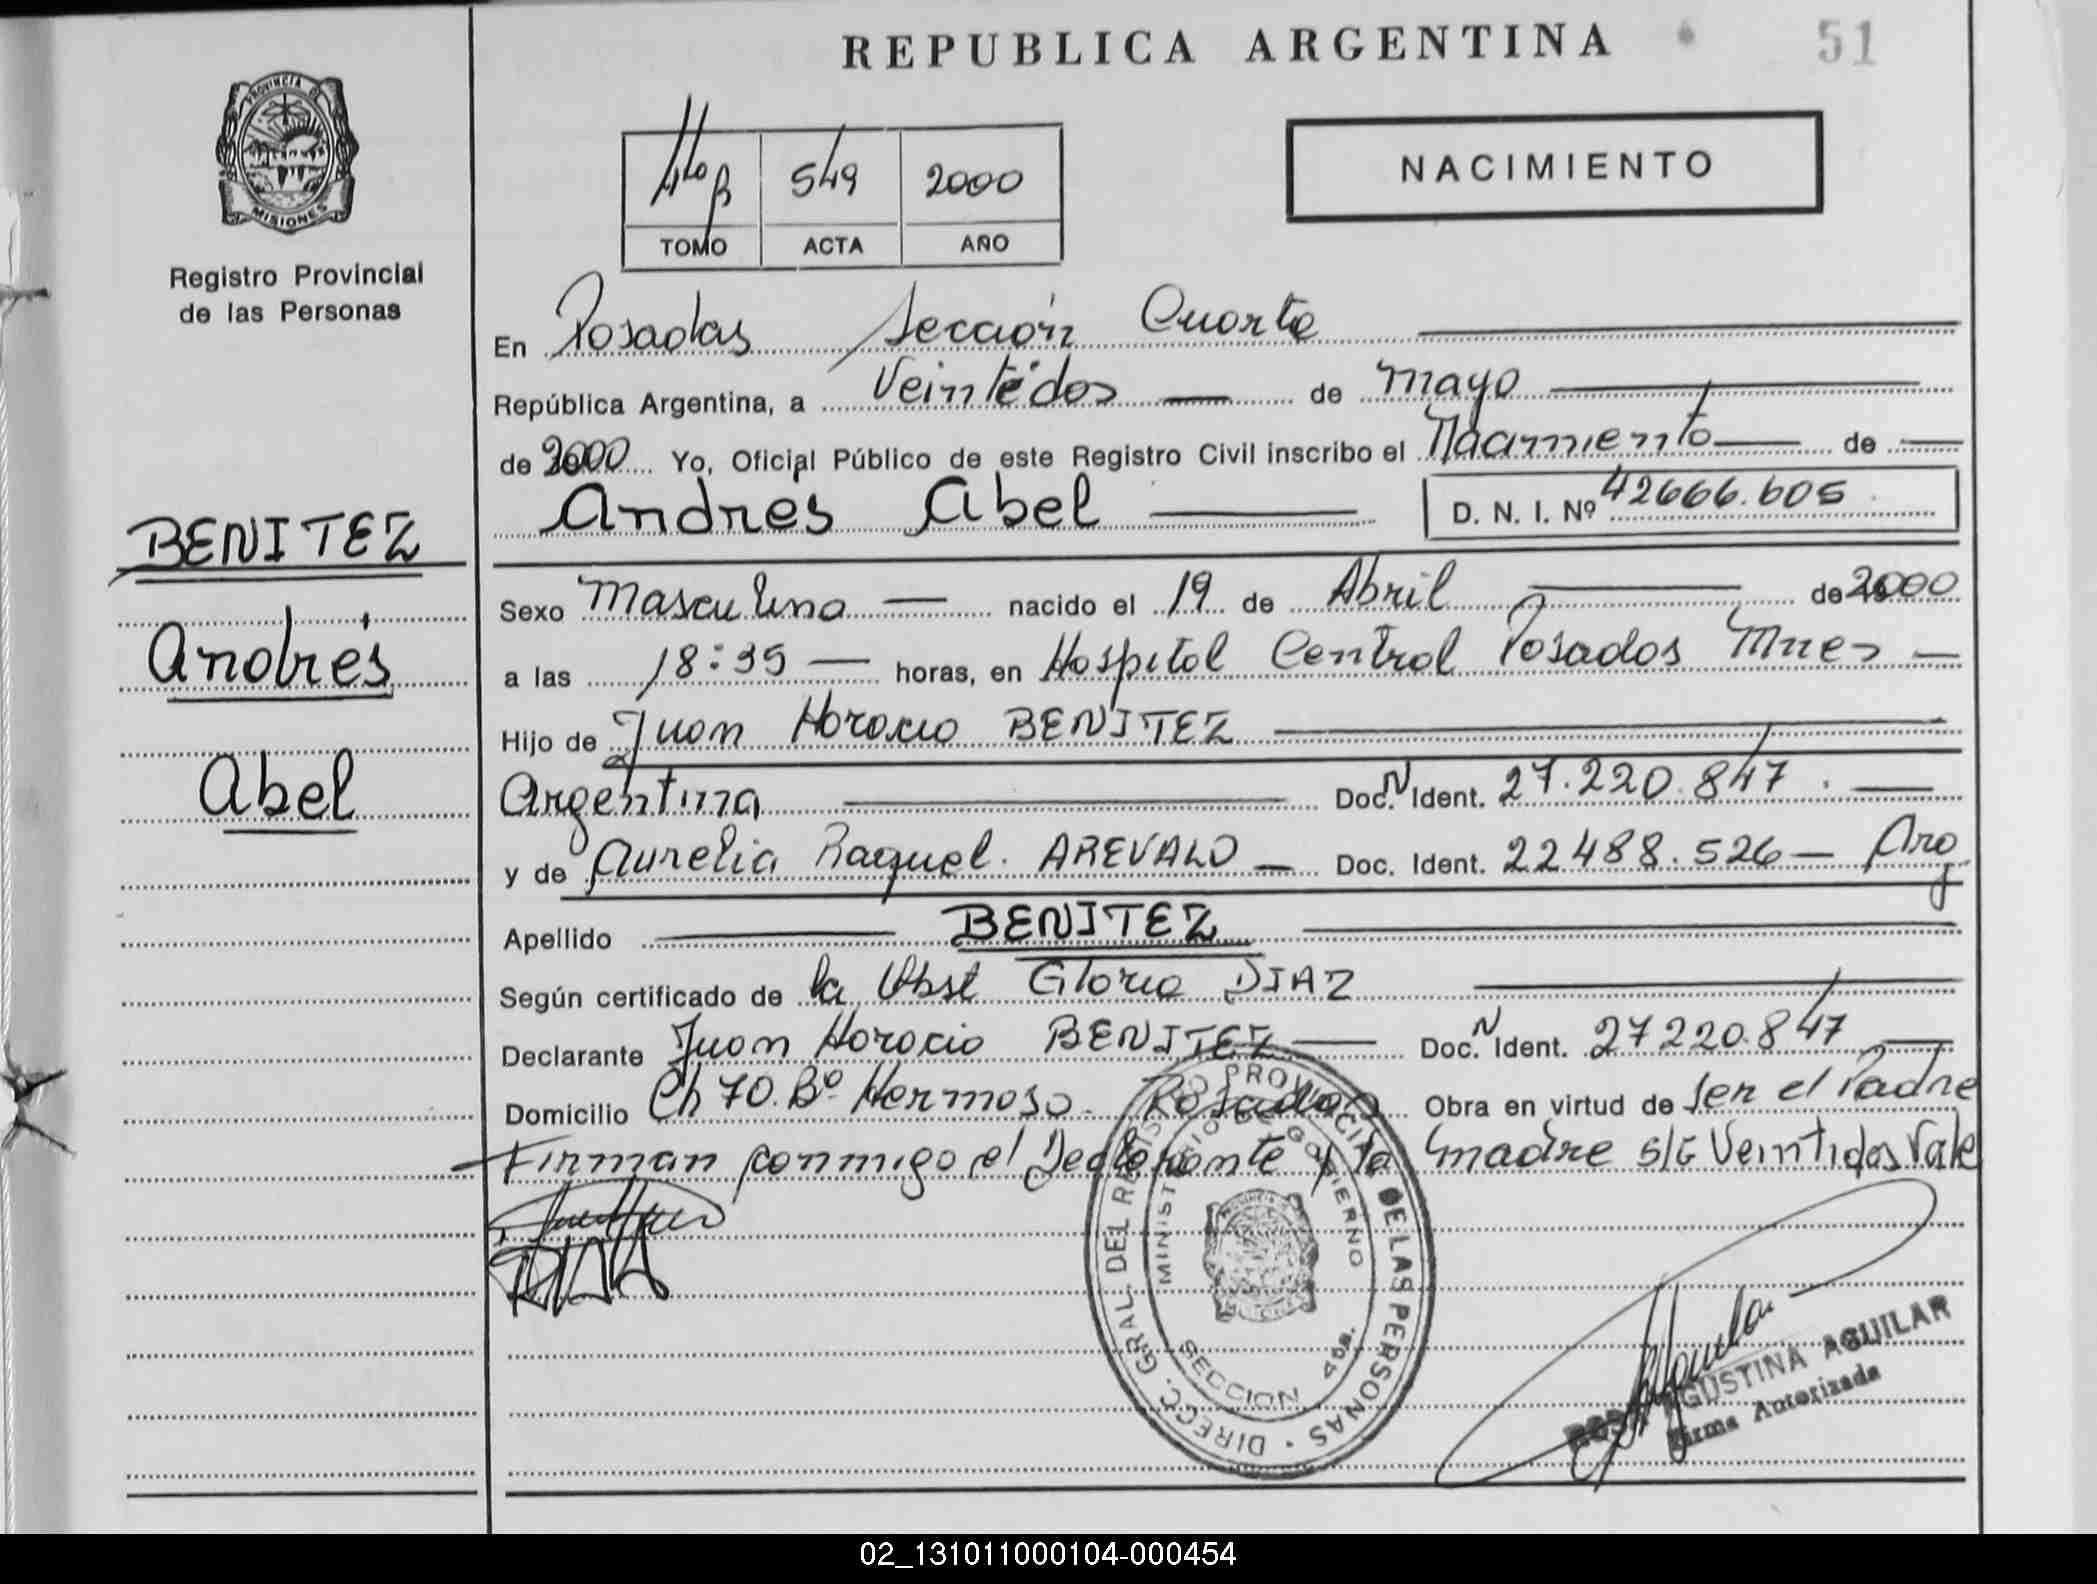 REPUBLICA ARGENTINA
51
PROVINCIA DE
MISIONES
Registro Provincial
de las Personas
549 2000
TOMO ACTA AÑO
NACIMIENTO
En Posadas Sección Cuarta
República Argentina, a Veintidos de Mayo
de 2000 Yo, Oficial Público de este Registro Civil inscribo el Nacimiento de
Andrés Abel D. N. I. Nº 42666.605
BENITEZ
Andrés
Abel
Sexo Masculino nacido el 19 de Abril de 2000
a las 18:35 horas, en Hospital Central Posadas Mnes
Hijo de Juan Horacio BENITEZ
Argentina Doc. N Ident. 27.220.847.
y de Aurelia Raquel. AREVALO Doc. Ident. 22488.526 Arg
Apellido BENITEZ
Según certificado de la Obst Gloria DIAZ
Declarante Juan Horacio BENITEZ Doc. N Ident. 27220.847
Domicilio Ch 70. Bº Hermoso. Posadas Obra en virtud de ser el Padre
Firman conmigo el Declarante y la madre s/E Veintidos Vale
DIRECC. GRAL. DEL REGISTRO PROVINCIAL DE LAS PERSONAS
MINISTERIO DE GOBIERNO
SECCION 4ta.
ROSA AGUSTINA AGUILAR
Firma Autorizada
02_131011000104-000454